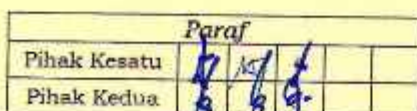 Paraf
Pihak Kesatu
Pihak Kedua